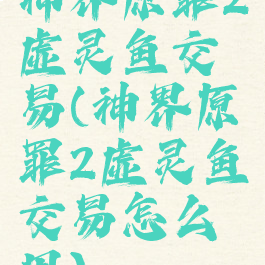 神界原罪2
虚灵鱼交
易(神界原
罪2虚灵鱼
交易怎么